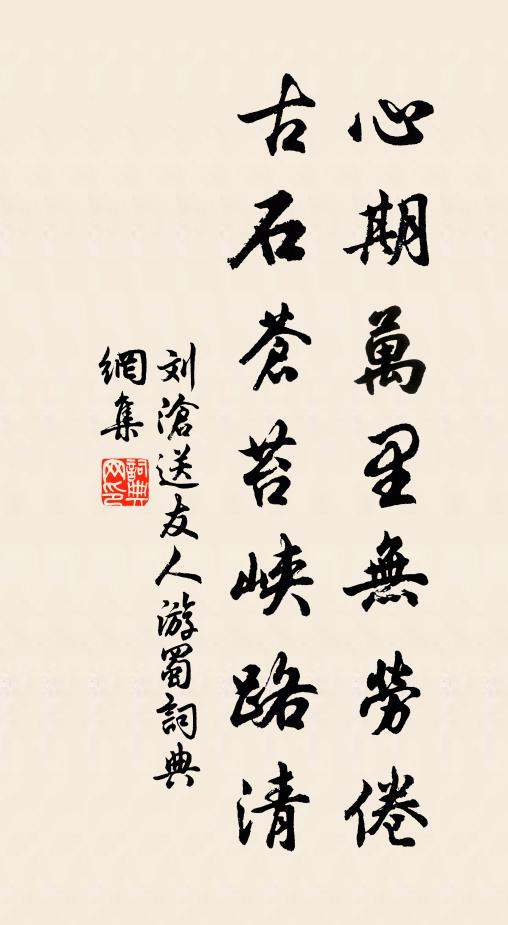 心期萬里無勞倦
古石蒼苔峽路清
刘滄送友人游蜀詞典
網集
詞典
网印